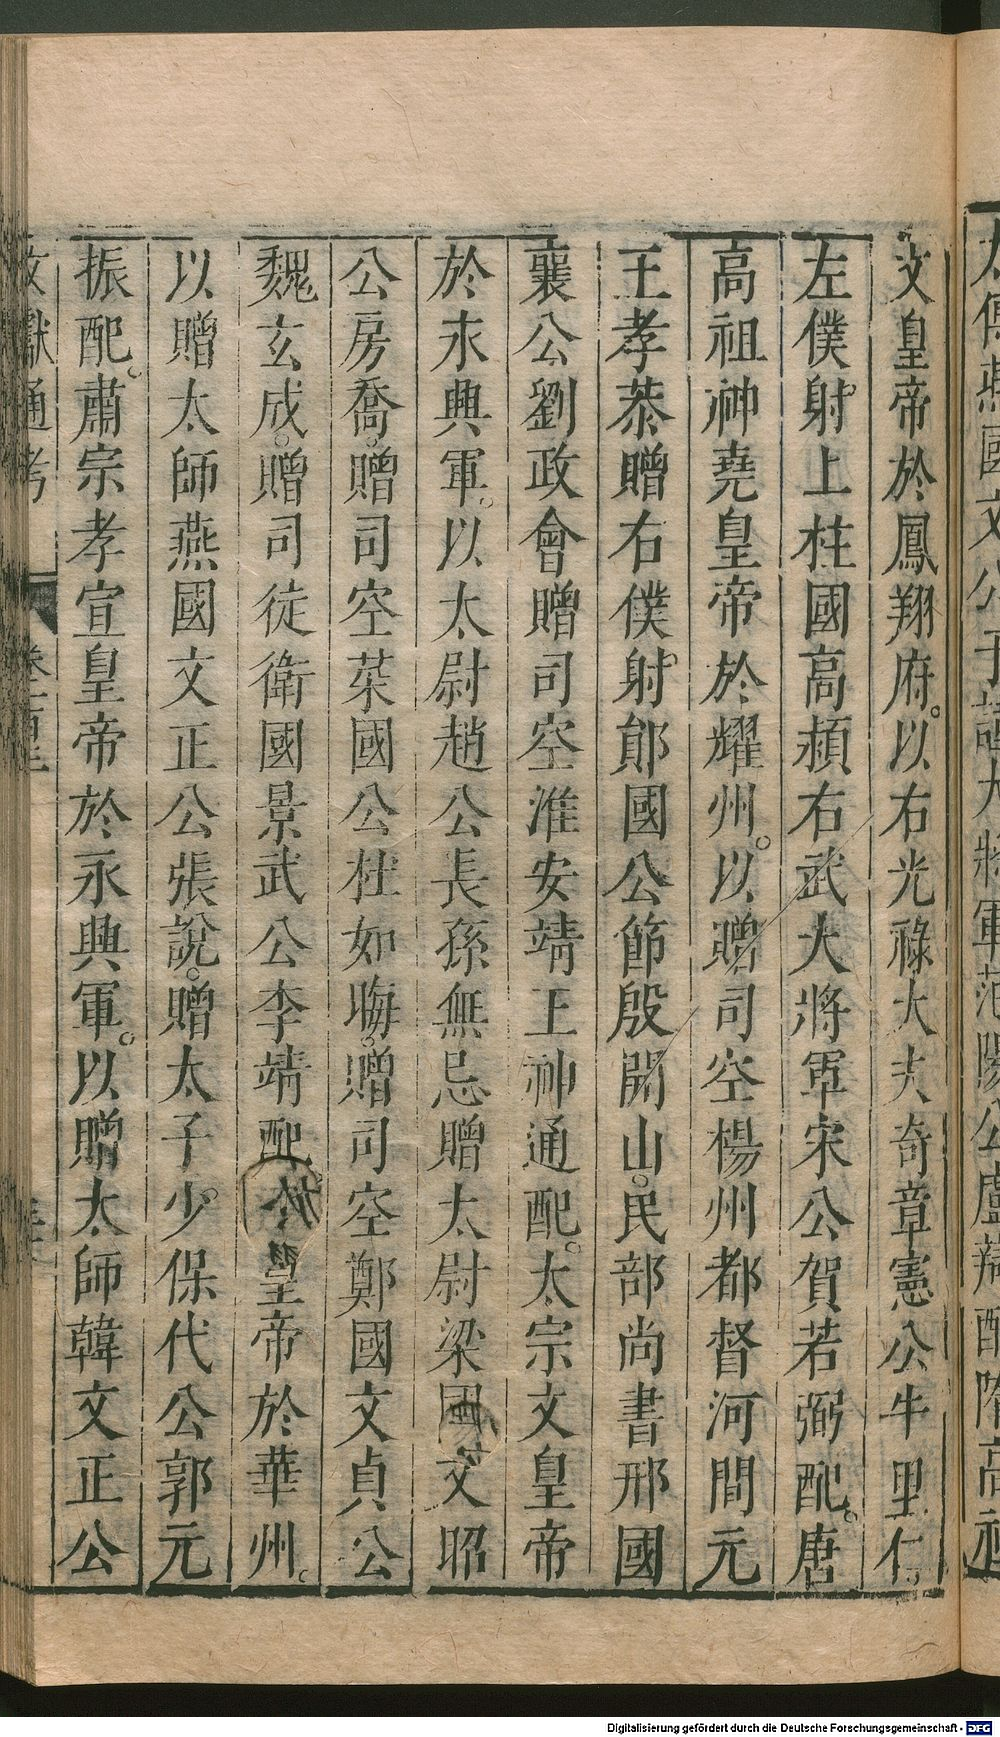 太傅燕國文公于謹大將軍范陽公盧辯配隋高祖
文皇帝於鳳翔府。以右光祿大夫奇章憲公牛里仁
左僕射。上柱國高熲右武大將軍宋公賀若弼配。唐
高祖神堯皇帝於耀州。以贈司空楊州都督河間元
王孝恭贈右僕射。鄖國公節殷開山。民部尚書邢國
襄公劉政會贈司空淮安靖王神通配。太宗文皇帝
於永興軍。以太尉趙公長孫無忌贈太尉梁國文昭
公房喬。贈司空萊國公杜如晦。贈司空鄭國文貞公
魏玄成。贈司徒衛國景武公李靖配皇帝於華州。
以贈太師燕國文正公張說。贈太子少。保代公郭元
振配。肅宗孝宣皇帝於永興軍。以贈太師韓文正公
文獻通考 卷一百
Digitalisierung gefördert durch die Deutsche Forschungsgemeinschaft - DFG